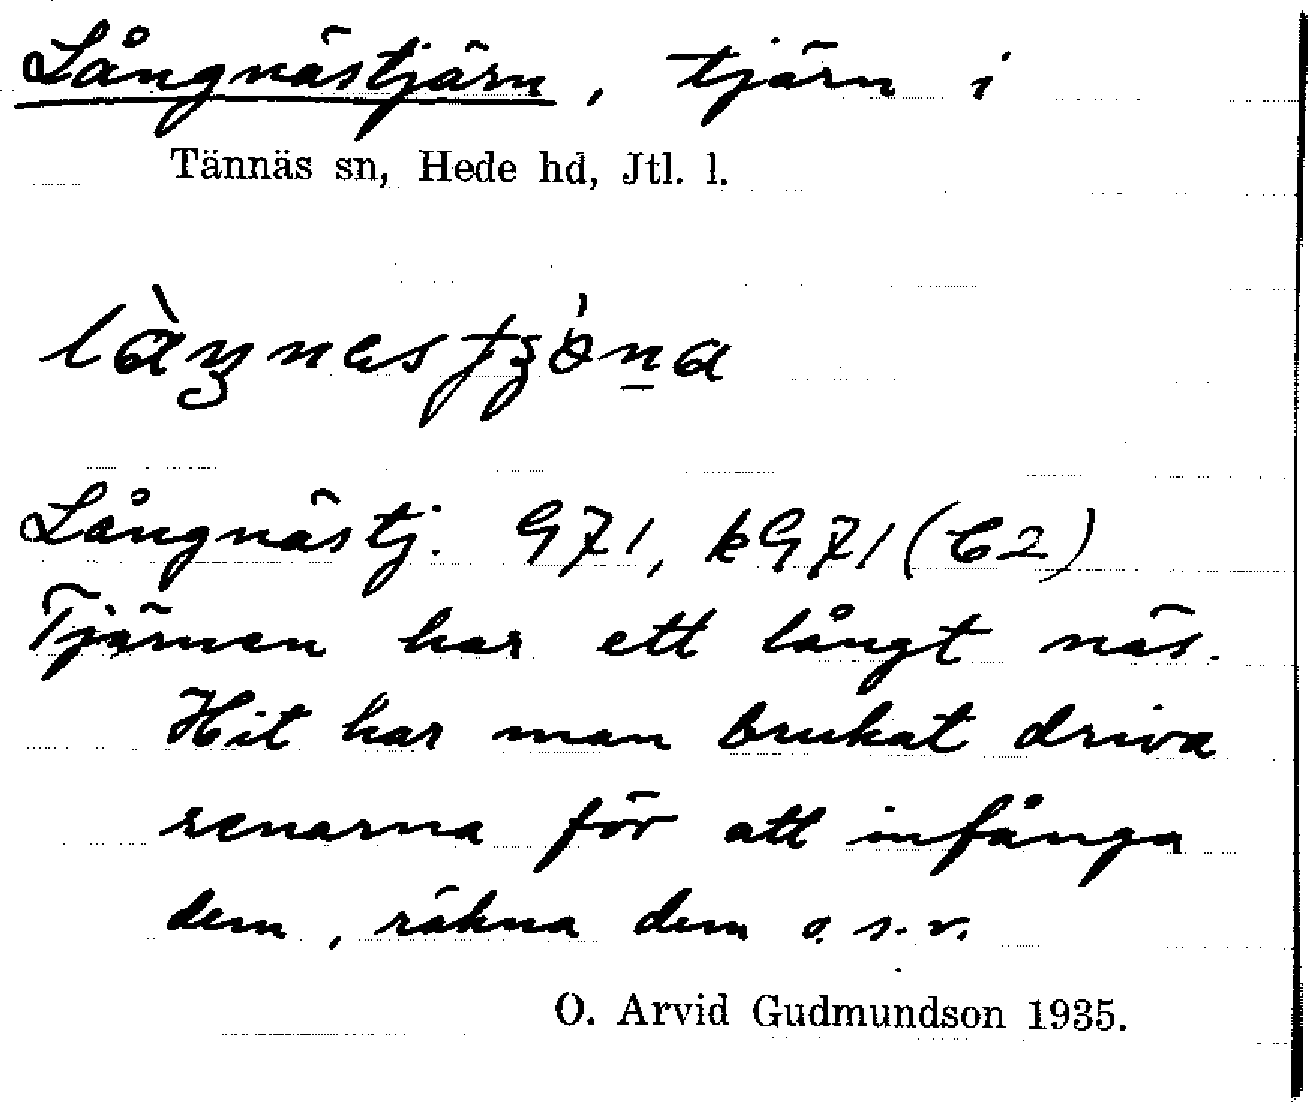 Långnästjärn, tjärn i
Tännäs sn, Hede hd, Jtl. l.
Långnästj. G71, kG71 (C2)
Tjärnen har ett långt näs.
Hit har man brukat driva
renarna för att infånga
dem, räkna dem o.s.v.
O. Arvid Gudmundson 1935.